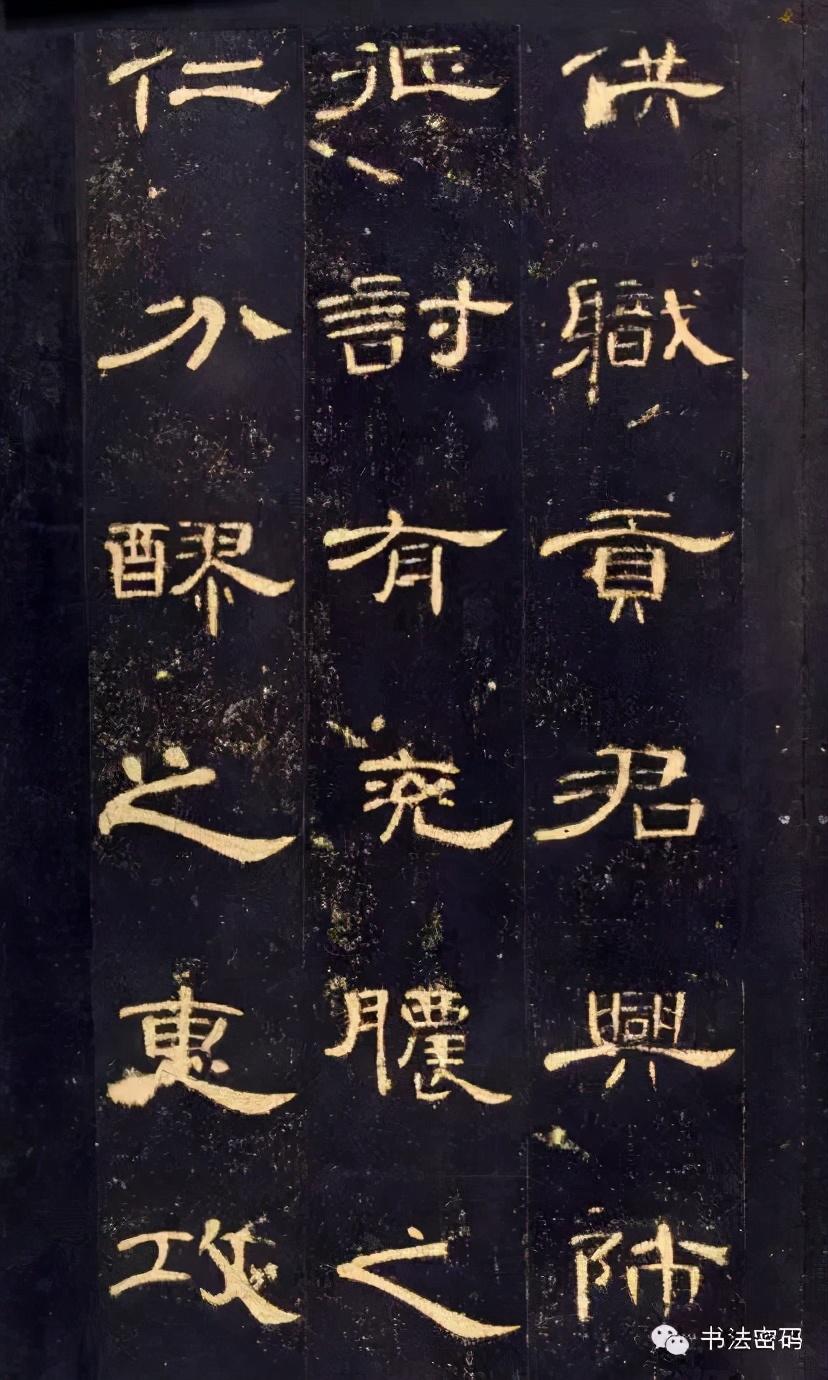 供職貢君興師
征討有兗膿之
仁分醪之惠攻
书法密码